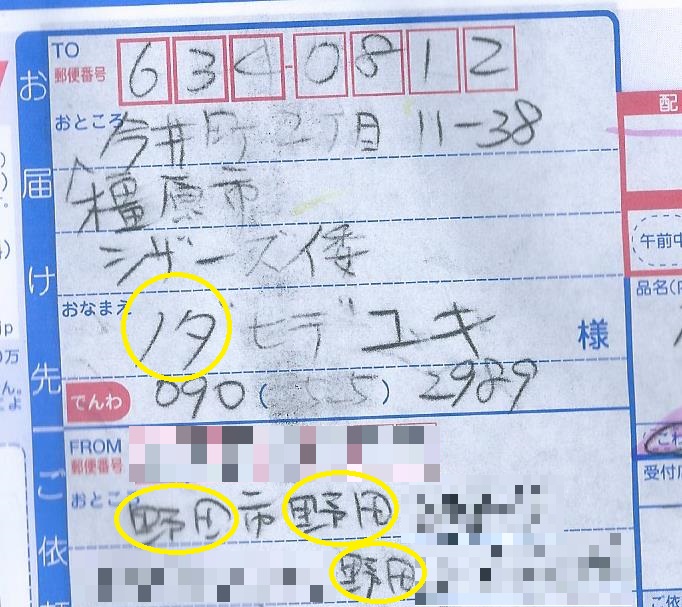 お届け先
TO
郵便番号 634-0812
おところ 今井町2丁目 11-38
橿原市
シザーズ倭
おなまえ ノダ ヒデユキ 様
でんわ 090 ( 55 ) 2989
FROM
郵便番号
おところ 野田市野田
野田
ご依
配
午前中
品名
こわ
受付
ご依